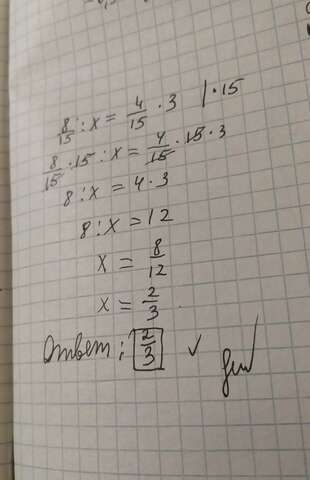 8/15 : x = 4/15 · 3 | · 15
8/15 · 15 : x = 4/15 · 15 · 3
8 : x = 4 · 3
8 : x = 12
x = 8/12
x = 2/3
Ответ: 2/3 ✓